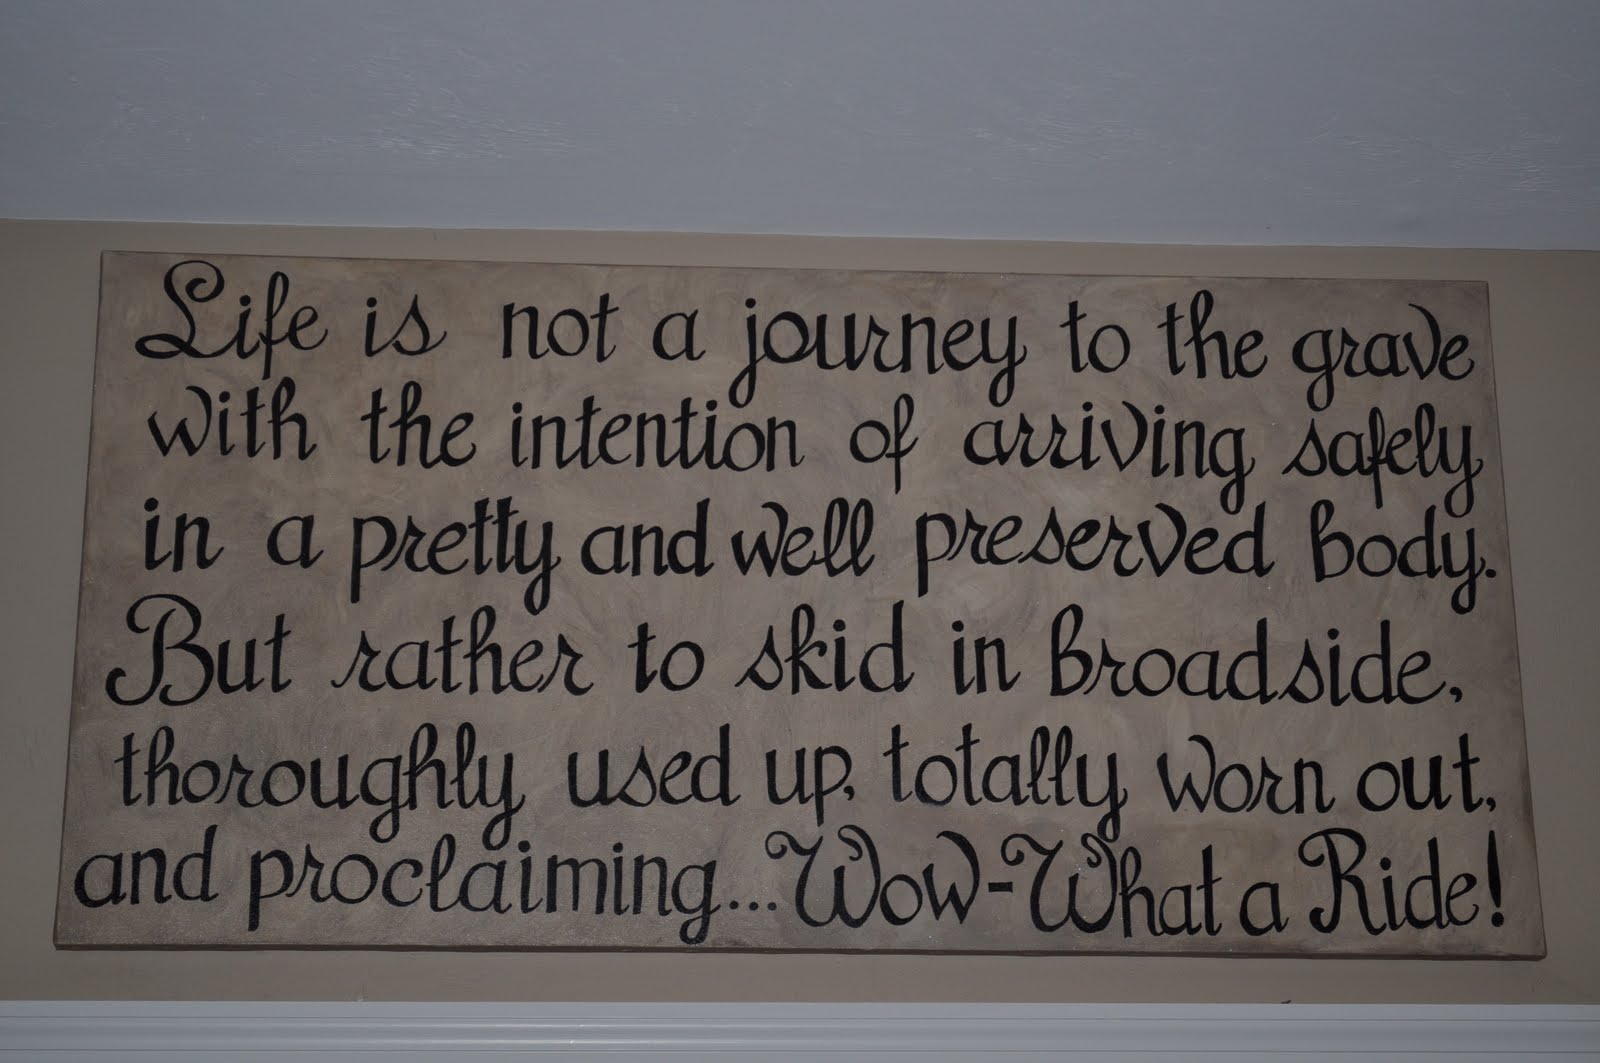 Life is not a journey to the grave
with the intention of arriving safely
in a pretty and well preserved body.
But rather to skid in broadside,
thoroughly used up, totally worn out,
and proclaiming...Wow-What a Ride!